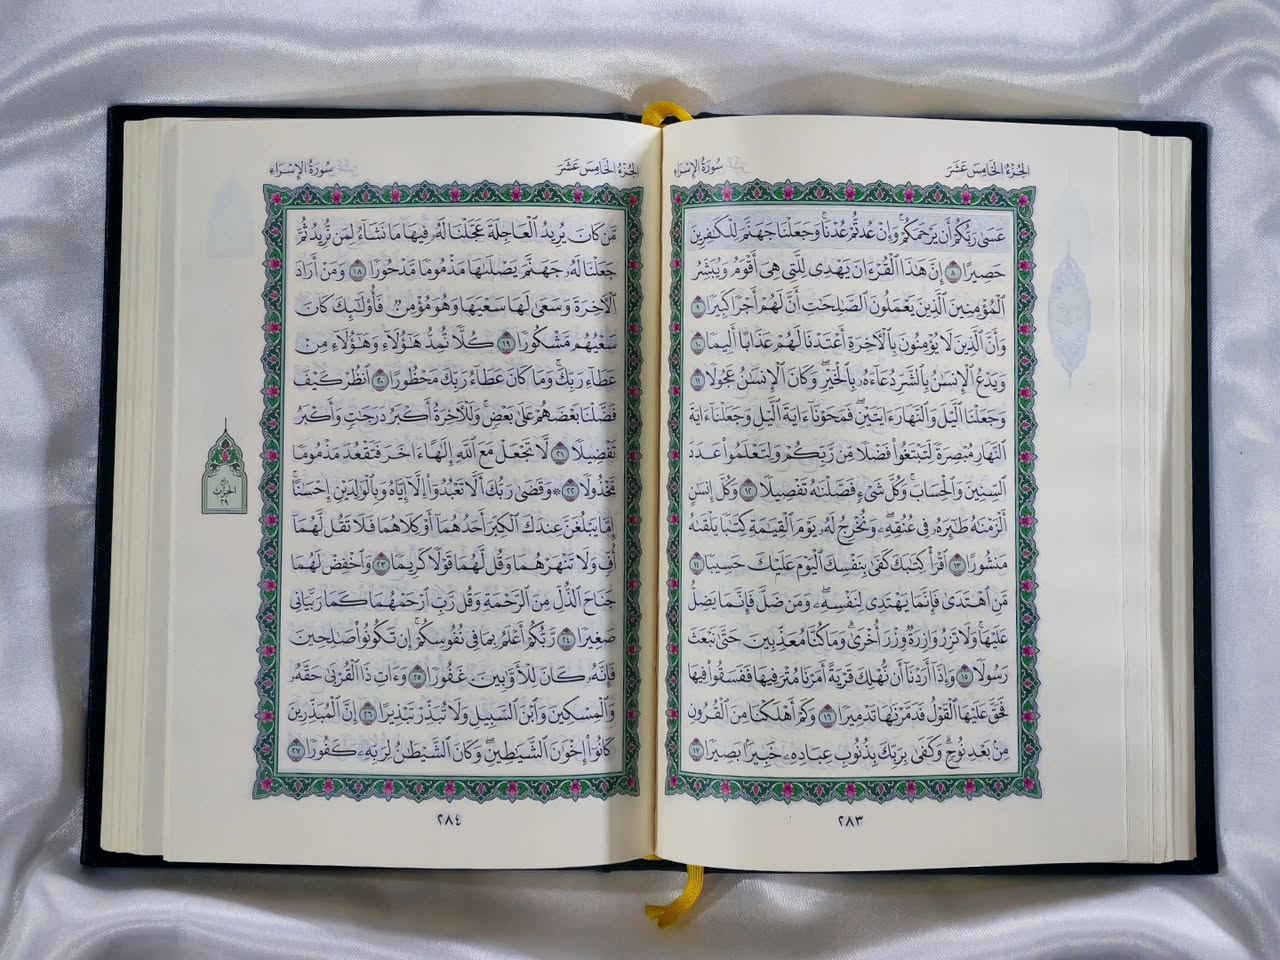 الجُزْءُ الخَامِسَ عَشَرَ
سُورَةُ الإِسْرَاءِ
عَسَىٰ رَبُّكُمْ أَن يَرْحَمَكُمْ ۚ وَإِنْ عُدتُّمْ عُدْنَا ۘ وَجَعَلْنَا جَهَنَّمَ لِلْكَٰفِرِينَ
حَصِيرًا ٨ إِنَّ هَٰذَا ٱلْقُرْءَانَ يَهْدِى لِلَّتِى هِىَ أَقْوَمُ وَيُبَشِّرُ
ٱلْمُؤْمِنِينَ ٱلَّذِينَ يَعْمَلُونَ ٱلصَّٰلِحَٰتِ أَنَّ لَهُمْ أَجْرًا كَبِيرًا ٩
وَأَنَّ ٱلَّذِينَ لَا يُؤْمِنُونَ بِٱلْأٓخِرَةِ أَعْتَدْنَا لَهُمْ عَذَابًا أَلِيمًا ١٠
وَيَدْعُ ٱلْإِنسَٰنُ بِٱلشَّرِّ دُعَآءَهُۥ بِٱلْخَيْرِ ۖ وَكَانَ ٱلْإِنسَٰنُ عَجُولًا ١١
وَجَعَلْنَا ٱلَّيْلَ وَٱلنَّهَارَ ءَايَتَيْنِ ۖ فَمَحَوْنَآ ءَايَةَ ٱلَّيْلِ وَجَعَلْنَآ ءَايَةَ
ٱلنَّهَارِ مُبْصِرَةً لِّتَبْتَغُوا۟ فَضْلًا مِّن رَّبِّكُمْ وَلِتَعْلَمُوا۟ عَدَدَ
ٱلسِّنِينَ وَٱلْحِسَابَ ۚ وَكُلَّ شَىْءٍ فَصَّلْنَٰهُ تَفْصِيلًا ١٢ وَكُلَّ إِنسَٰنٍ
أَلْزَمْنَٰهُ طَٰٓئِرَهُۥ فِى عُنُقِهِۦ ۖ وَنُخْرِجُ لَهُۥ يَوْمَ ٱلْقِيَٰمَةِ كِتَٰبًا يَلْقَىٰهُ
مَنشُورًا ١٣ ٱقْرَأْ كِتَٰبَكَ كَفَىٰ بِنَفْسِكَ ٱلْيَوْمَ عَلَيْكَ حَسِيبًا ١٤
مَّنِ ٱهْتَدَىٰ فَإِنَّمَا يَهْتَدِى لِنَفْسِهِۦ ۖ وَمَن ضَلَّ فَإِنَّمَا يَضِلُّ
عَلَيْهَا ۚ وَلَا تَزِرُ وَازِرَةٌ وِزْرَ أُخْرَىٰ ۗ وَمَا كُنَّا مُعَذِّبِينَ حَتَّىٰ نَبْعَثَ
رَسُولًا ١٥ وَإِذَآ أَرَدْنَآ أَن نُّهْلِكَ قَرْيَةً أَمَرْنَا مُتْرَفِيهَا فَفَسَقُوا۟ فِيهَا
فَحَقَّ عَلَيْهَا ٱلْقَوْلُ فَدَمَّرْنَٰهَا تَدْمِيرًا ١٦ وَكَمْ أَهْلَكْنَا مِنَ ٱلْقُرُونِ
مِنۢ بَعْدِ نُوحٍ ۗ وَكَفَىٰ بِرَبِّكَ بِذُنُوبِ عِبَادِهِۦ خَبِيرًۢا بَصِيرًا ١٧
٢٨٣
الجُزْءُ الخَامِسَ عَشَرَ
سُورَةُ الإِسْرَاءِ
مَّن كَانَ يُرِيدُ ٱلْعَاجِلَةَ عَجَّلْنَا لَهُۥ فِيهَا مَا نَشَآءُ لِمَن نُّرِيدُ ثُمَّ
جَعَلْنَا لَهُۥ جَهَنَّمَ يَصْلَىٰهَا مَذْمُومًا مَّدْحُورًا ١٨ وَمَنْ أَرَادَ
ٱلْأٓخِرَةَ وَسَعَىٰ لَهَا سَعْيَهَا وَهُوَ مُؤْمِنٌ فَأُو۟لَٰٓئِكَ كَانَ
سَعْيُهُم مَّشْكُورًا ١٩ كُلًّا نُّمِدُّ هَٰٓؤُلَآءِ وَهَٰٓؤُلَآءِ مِنْ
عَطَآءِ رَبِّكَ ۚ وَمَا كَانَ عَطَآءُ رَبِّكَ مَحْظُورًا ٢٠ ٱنظُرْ كَيْفَ
فَضَّلْنَا بَعْضَهُمْ عَلَىٰ بَعْضٍ ۚ وَلَلْأٓخِرَةُ أَكْبَرُ دَرَجَٰتٍ وَأَكْبَرُ
تَفْضِيلًا ٢١ لَّا تَجْعَلْ مَعَ ٱللَّهِ إِلَٰهًا ءَاخَرَ فَتَقْعُدَ مَذْمُومًا
مَّخْذُولًا ٢٢ ۞ وَقَضَىٰ رَبُّكَ أَلَّا تَعْبُدُوٓا۟ إِلَّآ إِيَّاهُ وَبِٱلْوَٰلِدَيْنِ إِحْسَٰنًا ۚ
إِمَّا يَبْلُغَنَّ عِندَكَ ٱلْكِبَرَ أَحَدُهُمَآ أَوْ كِلَاهُمَا فَلَا تَقُل لَّهُمَآ
أُفٍّ وَلَا تَنْهَرْهُمَا وَقُل لَّهُمَا قَوْلًا كَرِيمًا ٢٣ وَٱخْفِضْ لَهُمَا
جَنَاحَ ٱلذُّلِّ مِنَ ٱلرَّحْمَةِ وَقُل رَّبِّ ٱرْحَمْهُمَا كَمَا رَبَّيَانِى
صَغِيرًا ٢٤ رَّبُّكُمْ أَعْلَمُ بِمَا فِى نُفُوسِكُمْ ۚ إِن تَكُونُوا۟ صَٰلِحِينَ
فَإِنَّهُۥ كَانَ لِلْأَوَّٰبِينَ غَفُورًا ٢٥ وَءَاتِ ذَا ٱلْقُرْبَىٰ حَقَّهُۥ
وَٱلْمِسْكِينَ وَٱبْنَ ٱلسَّبِيلِ وَلَا تُبَذِّرْ تَبْذِيرًا ٢٦ إِنَّ ٱلْمُبَذِّرِينَ
كَانُوٓا۟ إِخْوَٰنَ ٱلشَّيَٰطِينِ ۖ وَكَانَ ٱلشَّيْطَٰنُ لِرَبِّهِۦ كَفُورًا ٢٧
ربع
الحزب
٢٩
٢٨٤